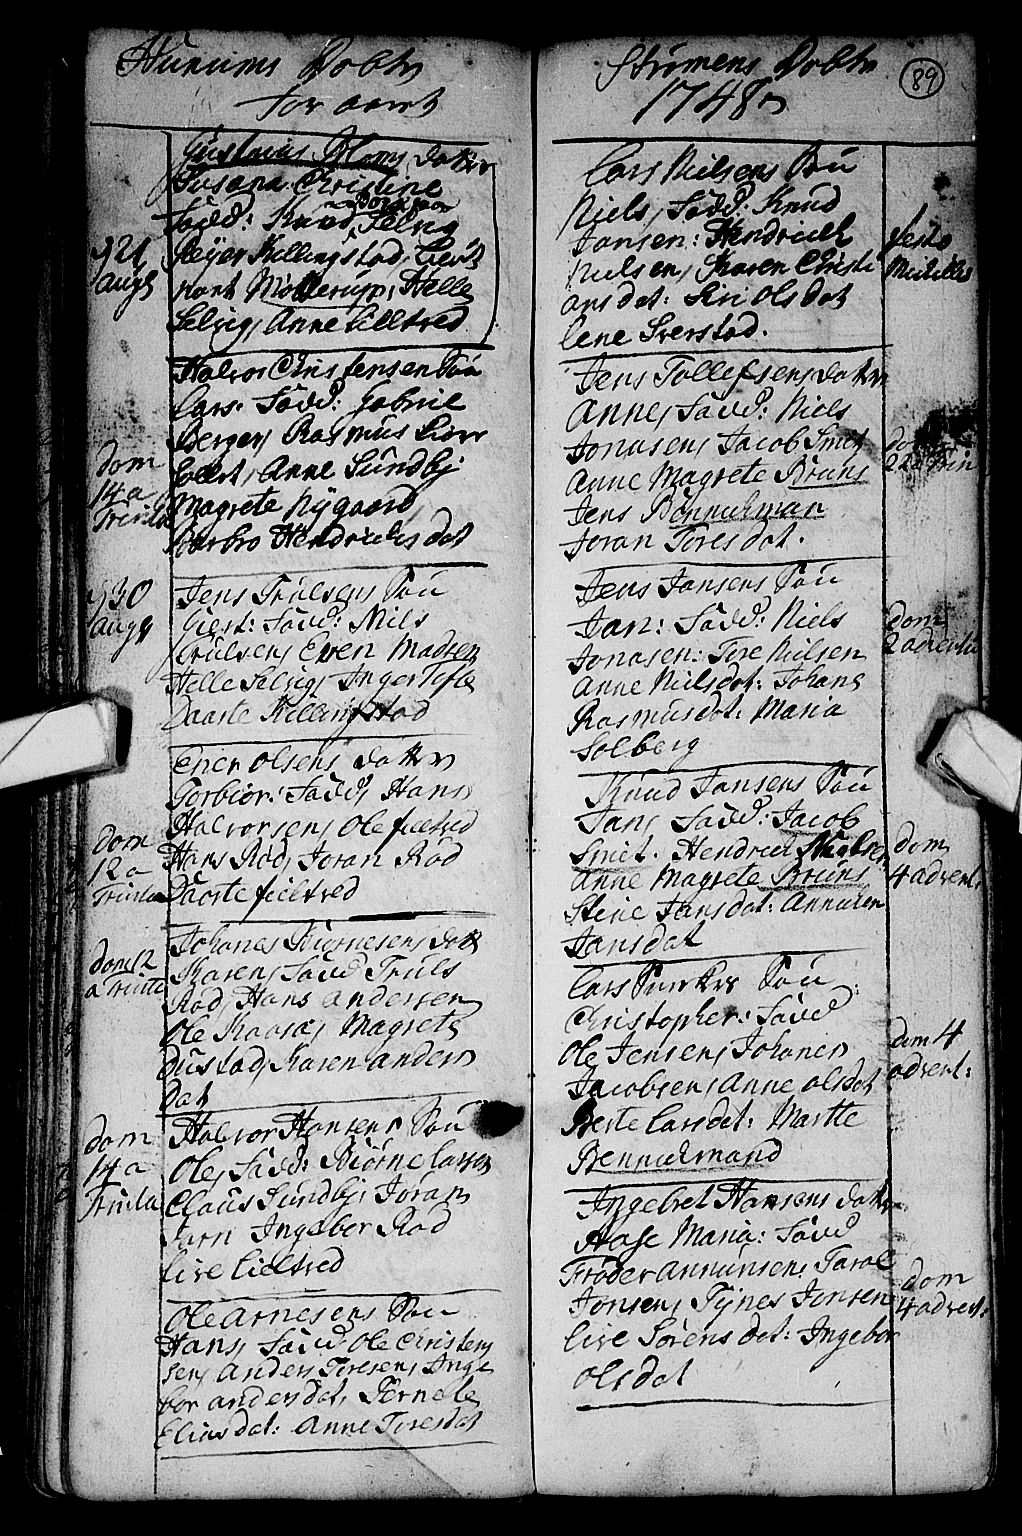 Hurums Dobte
for aaret
d 21
aug
Gustavus Bloms datter
Susana Christine
fadd: Knud Selvig
Sejer Killingstad,
nant Møllerup, Helle
Selvig, Anne
dom
14 a
Trinita
Halvor Christensens Søn
Lars. fadd: Gabriel
Berger, Rasmus
Anne Sundby
Magrete Nygaard
Barbro Hendrichsdat
d 30
aug
Jens Trulsens Søn
Giert: fadd: Niels
Trulsen, Even Madsen
Helle Selvig, Inger Tofte
Daarte Killingstad
dom
12 a
Trinita
Even Olsens datter
Torbior: fadd, Hans
Halvorsen, Ole fieltved
Hans Rød, Joran Rød
Daarte fieltved
dom 12
a Trinit
Johanes Biørnesens datt
Karen, fadd Truls
Rød, Hans andersen
Ole Kaasa, Magrete
Dustad, Karen anders
dat
dom
14 a
Trinita
Halvor Hansens Søn
Ole, fadd: Biørne Larsen
Claus Sundby, Joran
Ingebor Rød
Live
Ole Arnesens Søn
Hans, fadd Ole Christen
sen, Anders Toresen, Inge
bor andersdat, Pernele
Eliasdat: Anne Toresdat
Strømens Dobte
1748
89
Lars Nielsens Søn
Niels, fadd: Knud
Jansen: Hendrich
Nielsen, Karen Christi
ansdat: Siri Olsdat
Lene Sverstad.
festo
Michaelis
Jens Tollefsens datter
Anne, fadd: Niels
Jonasen, Jacob Smit
Anne Magrete Bruns
Jens Bennichman
Joran Toresdat.
dom
22 a Trin
Jens Jansens Søn
Jan: fadd: Niels
Jonasen: Tore Nielsen
Anne Nielsdat: Johane
Rasmusdat: Maria
Solberg
dom
2 adventu
Knud Jansens Søn
Jan, fadd: Jacob
Smit. Hendrich
Anne Magrete Bruns
Stine Jansdat: Annicken
Jansdat
dom
4 advent:
Lars Søn
Christopher: fadd
Ole Jensen, Johanes
Jacobsen, Anne Olsdat
Berte Larsdat: Marthe
Bennichmand
dom 4
advent:
Ingebret Hansens datter
Aase Maria: fadd
Frøder Annunsen, Tarol
Jonsen, Tynes Jonsen
Live Sørensdat: Ingebor
Olsdat
dom
4 advent: